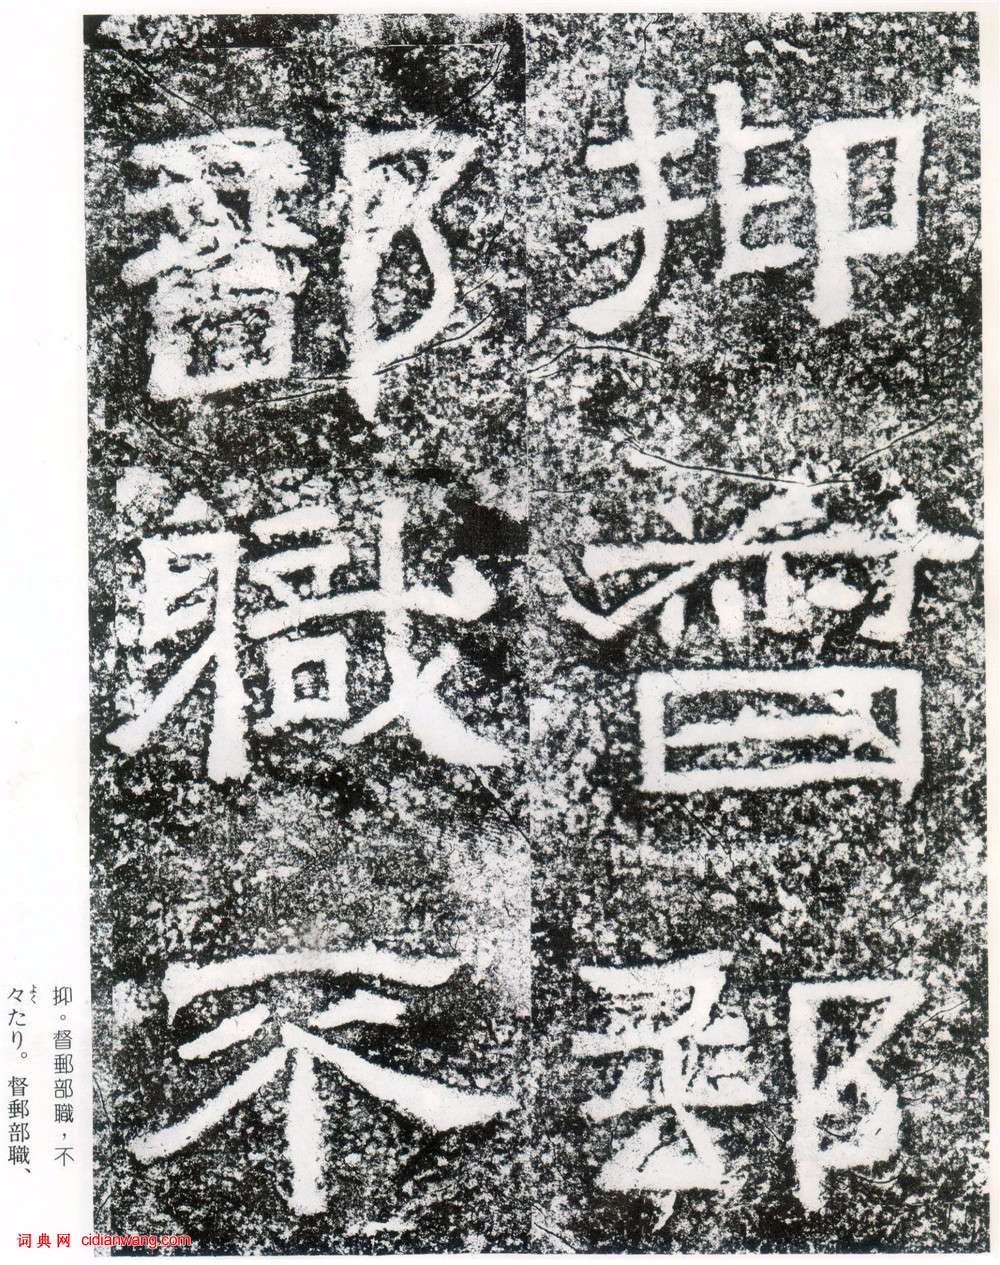 抑督郵
部職不
抑。督郵部職，不
々たり。督郵部職、
よく
词典网 cidianwang.com